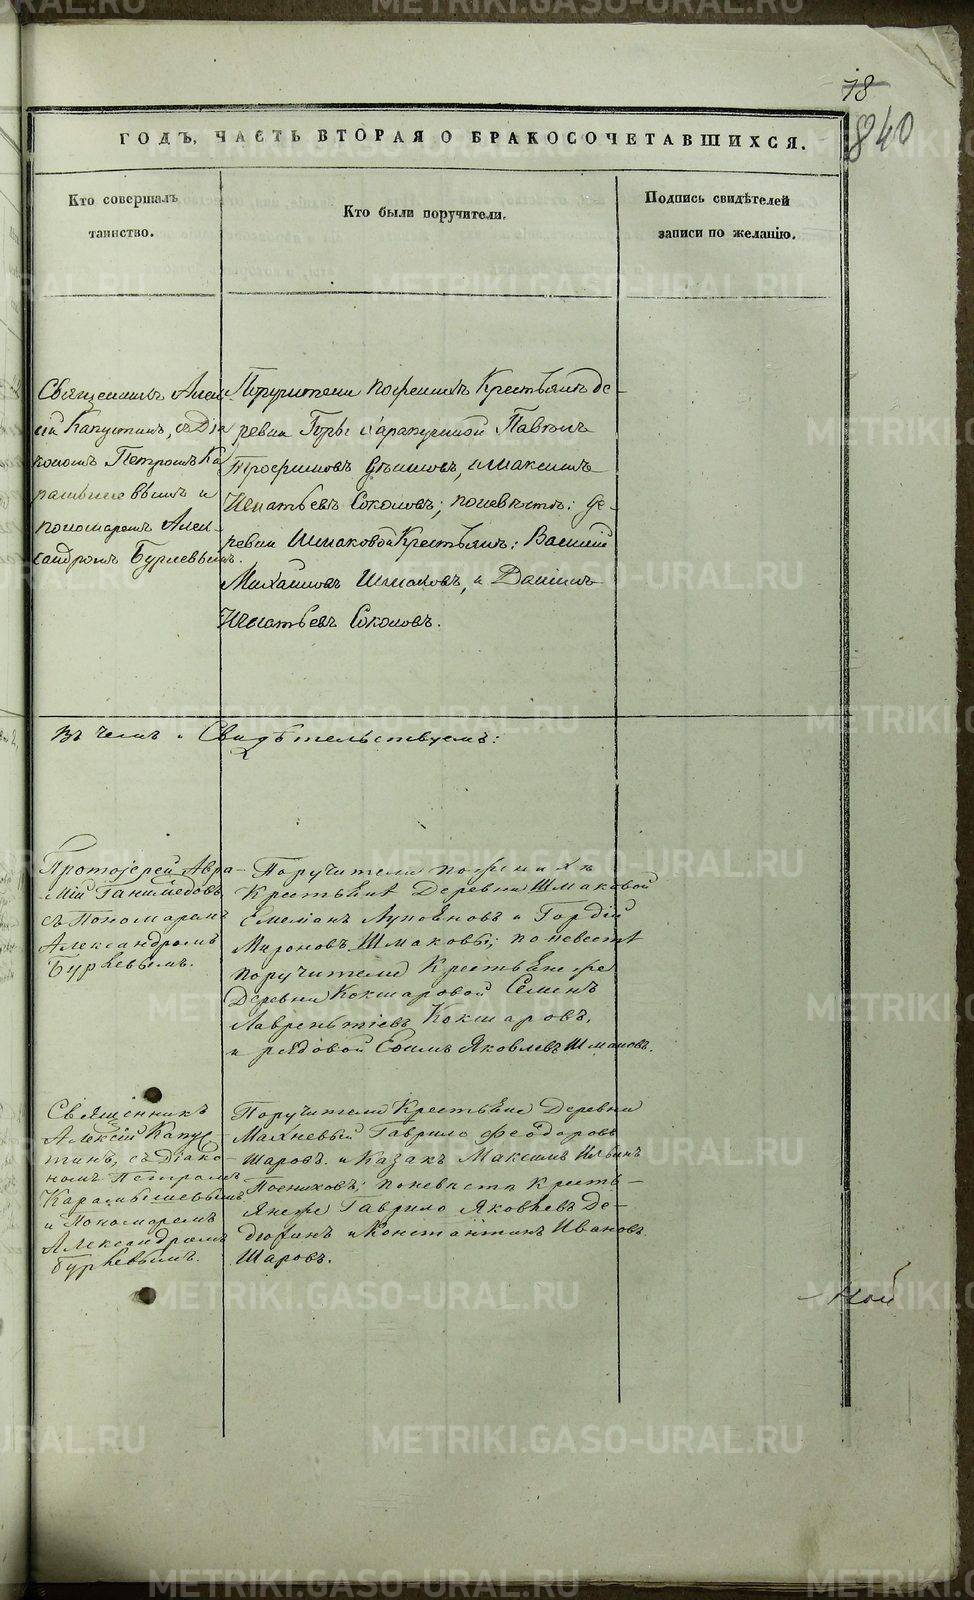 78
840
ГОДЪ, ЧАСТЬ ВТОРАЯ О БРАКОСОЧЕТАВШИХСЯ.
Кто совершалъ
таинство.
Кто были поручители.
Подпись свидѣтелей
записи по желанію.
Священникъ Алек-
сѣй Капустинъ, съ Діа
кономъ Петромъ Ка
рамышевымъ и
пономаремъ Алек-
сандромъ Бурлевымъ.
Поручители по женихѣ Крестьяне де-
ревни Горы Сарапулкой Павелъ
Трофимовъ, и Максимъ
Игнатьевъ Соколовъ; по невѣстѣ: де-
ревни Шмаковой Крестьяне: Василій
Михайловъ Шмаковъ, и Даніилъ
Игнатьевъ Соколовъ.
Въ чемъ и Свидѣтельствуемъ:
Протоіерей Авра
мій Ганимедовъ
съ Пономаремъ
Александромъ
Бурлевымъ.
Поручители по женихѣ
Крестьяне Деревни Шмаковой
Емельянъ Лупановъ и Гордій
Мироновъ Шмаковы; по невестѣ
поручители Крестьяне же
Деревни Кокшаровой Семенъ
Лаврентіевъ Кокшаровъ,
и рядовой Ефимъ Яковлевъ Шмаковъ.
Священникъ
Алексій Капус
тинъ, съ Діако-
номъ Петромъ
Карамышевымъ
и Пономаремъ
Александромъ
Бурлевымъ.
Поручители Крестьяне Деревни
Махневый Гаврило Феодоровъ
Шаровъ. и Казакъ Максимъ Ильинъ
Посниковъ; по невѣстѣ Кресть-
яне же Гаврило Яковлевъ Де-
дюхинъ и Константинъ Ивановъ
Шаровъ.
METRIKI.GASO-URAL.RU